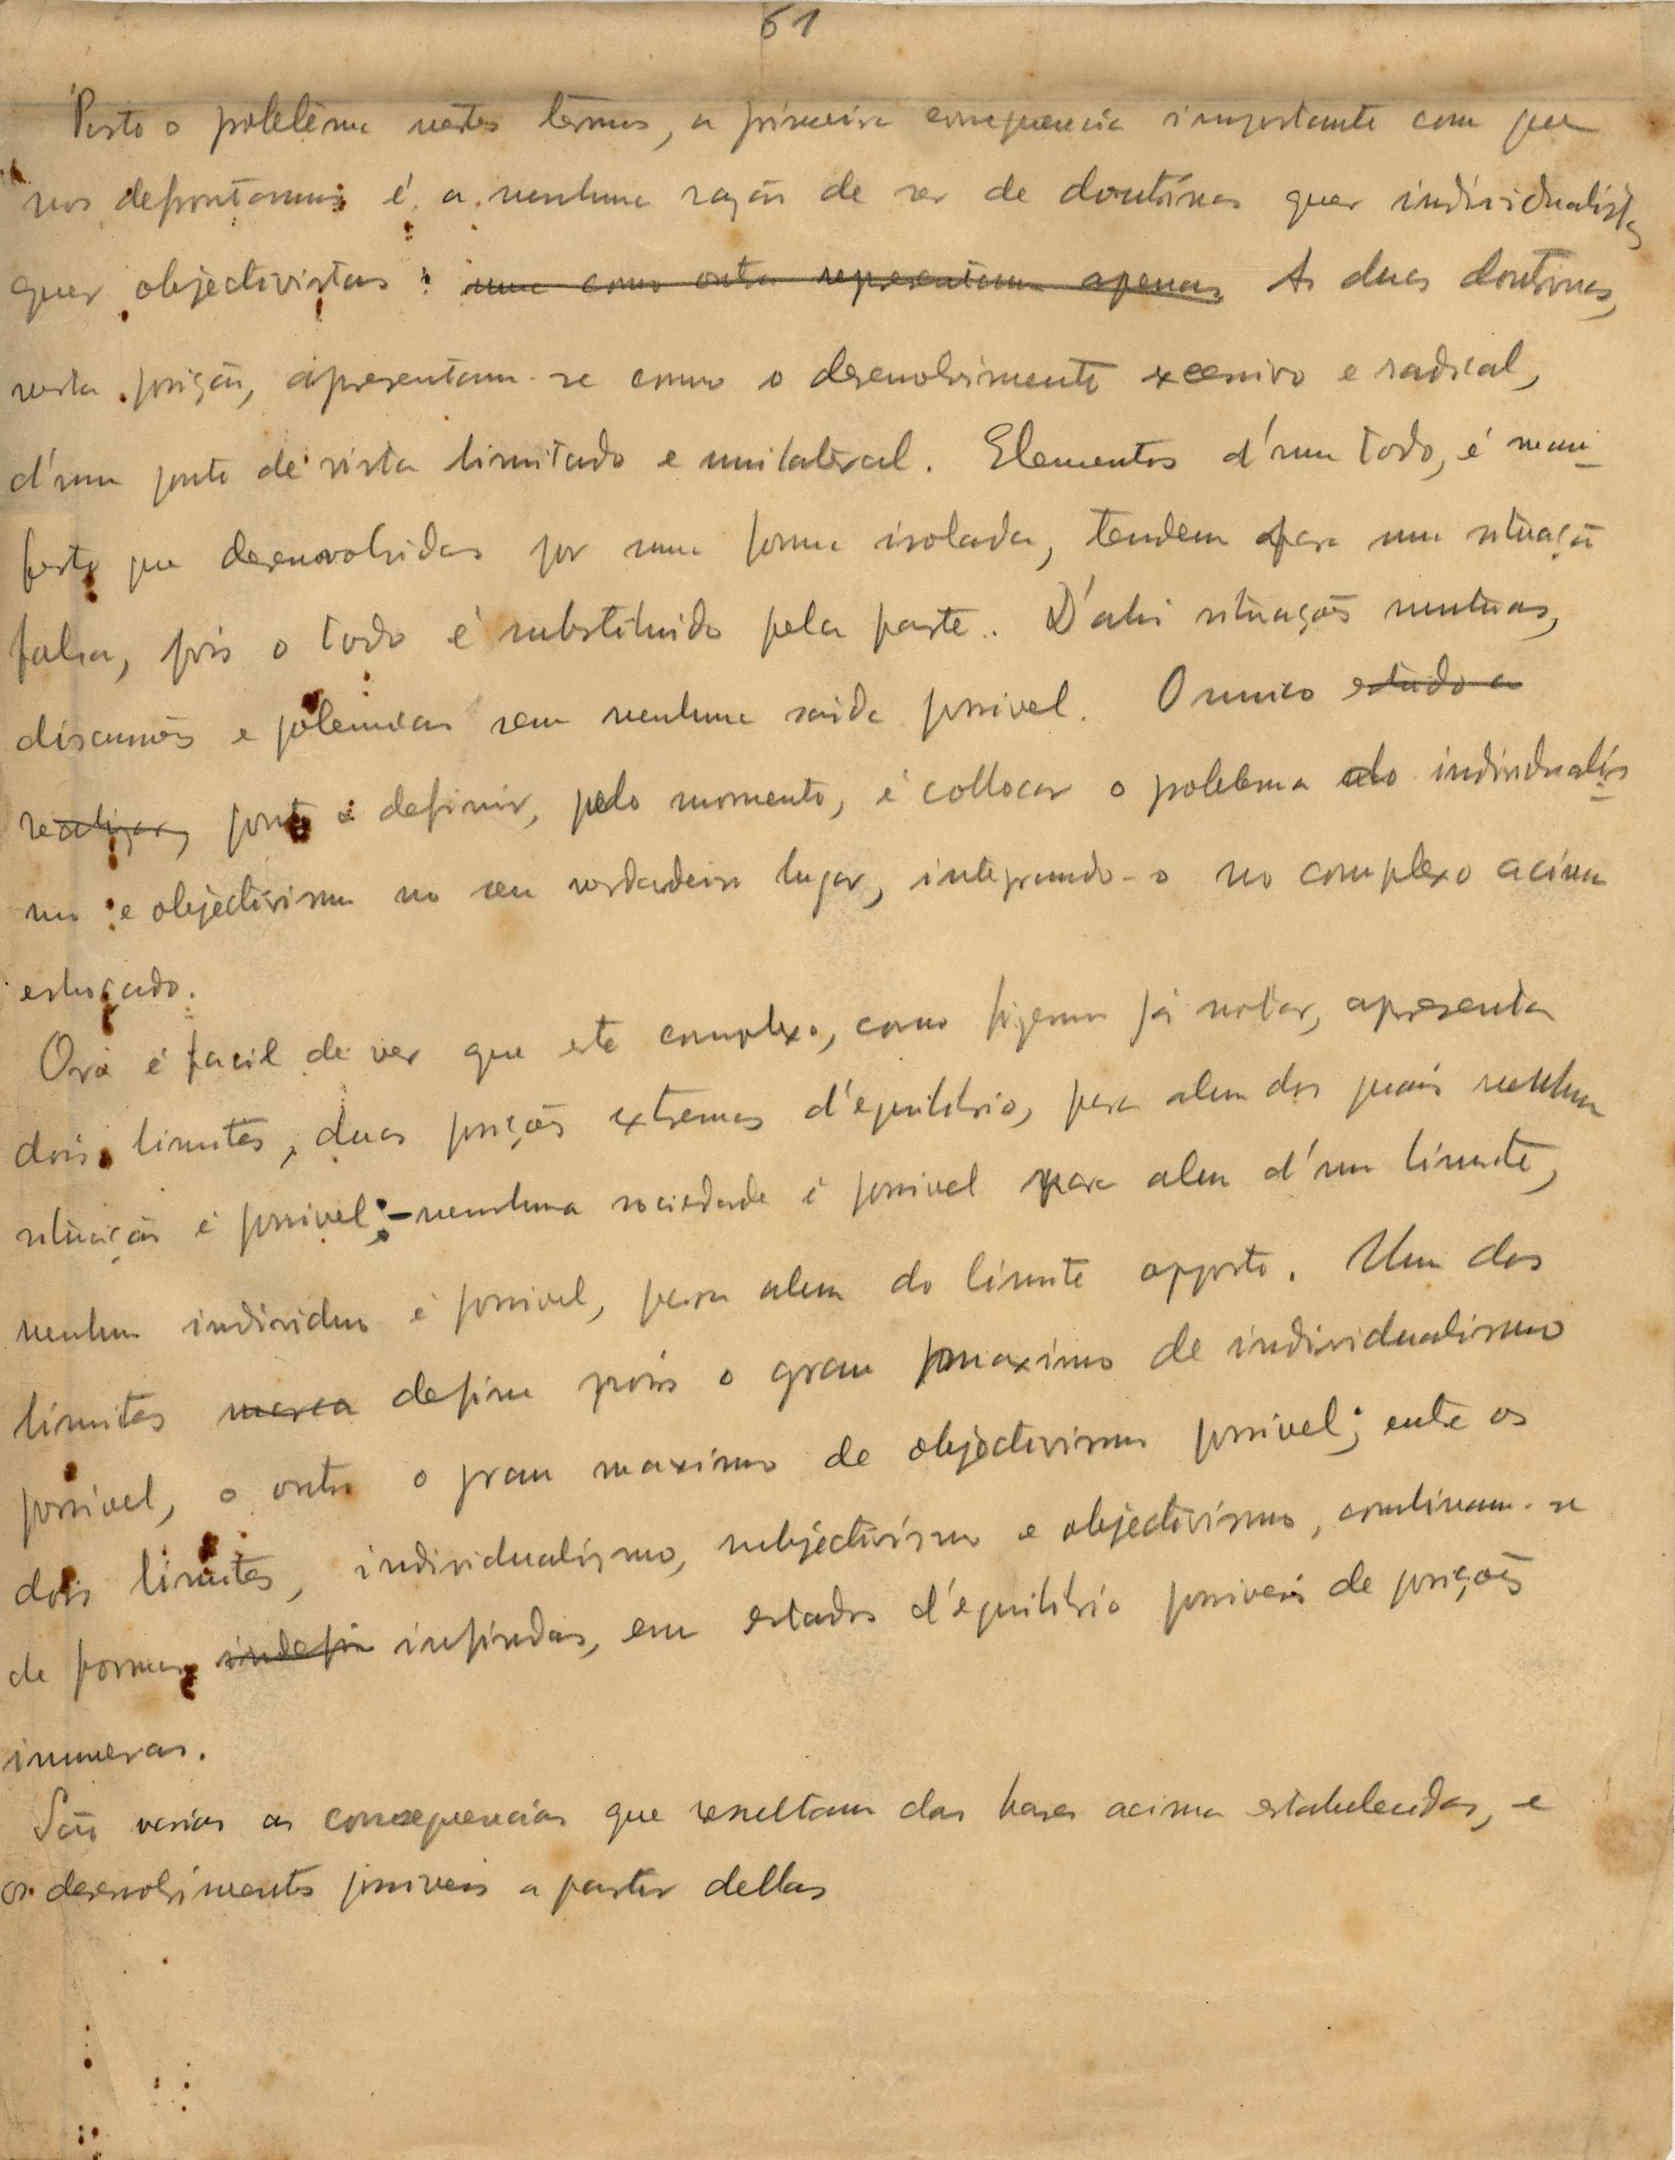 61
Posto o problema nestes termos, a primeira consequencia importante com que
nos defrontamos é a nenhuma razão de ser de doutrinas quer individualistas
quer objectivistas: uma como outra representam apenas As duas doutrinas,
nesta posição, apresentam-se como o desenvolvimento excessivo e radical,
d'um ponto de vista limitado e unilateral. Elementos d'um todo, é mani-
festo que desenvolvidas por uma forma isolada, tendem para uma situação
falsa, pois o todo é substituido pela parte. D'ahi situações mutuas,
discussões e polemicas sem nenhuma saida possivel. O unico estudo a
realizar, ponto a definir, pelo momento, é collocar o problema do individualis-
mo e objectivismo no seu verdadeiro lugar, integrando-o no complexo acima
esboçado.
Ora é facil de ver que este complexo, como fizemos já notar, apresenta
dois limites, duas posições extremas d'equilibrio, para alem dos quais nenhuma
situação é possivel; - nenhuma sociedade é possivel para alem d'um limite,
nenhum individuo é possivel, para alem do limite opposto. Um dos
limites marca define pois o grau maximo de individualismo
possivel, o outro o grau maximo de objectivismo possivel; entre os
dois limites, individualismo, subjectivismo e objectivismo, combinam-se
de formas indefin infindas, em estados d'equilibrio possiveis de posições
inumeras.
São varias as consequencias que resultam das bases acima estabelecidas, e
os desenvolvimentos possiveis a partir dellas